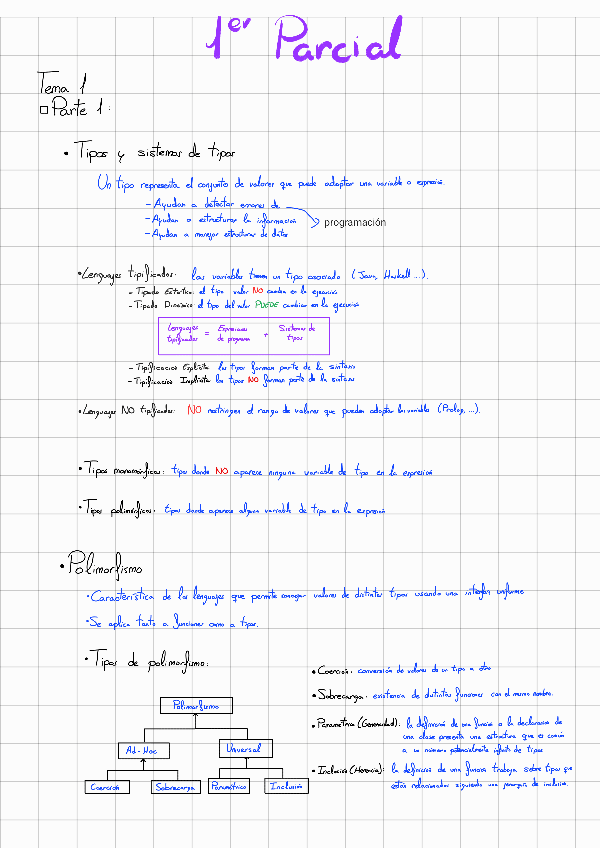 1er Parcial
Tema 1
Parte 1:
• Tipos y sistemas de tipos
Un tipo representa el conjunto de valores que puede adoptar una variable o expresión
- Ayudan a detectar errores de
programación
- Ayudan a estructurar la información
- Ayudan a manejar estructuras de datos
• Lenguajes tipificados: las variables tienen un tipo asociado (Java, Haskell ...).
- Tipado Estático: el tipo valor NO cambia en la ejecución
- Tipado Dinámico: el tipo del valor PUEDE cambiar en la ejecución
Lenguajes tipificados = Expresiones de programa + Sistemas de tipos
- Tipificación Explícita los tipos forman parte de la sintaxis
- Tipificación Implícita los tipos NO forman parte de la sintaxis
• Lenguajes NO tipificados: NO restringen el rango de valores que pueden adoptar las variables (Prolog, ...).
• Tipos monomórficos: tipos donde NO aparece ninguna variable de tipo en la expresión
• Tipos polimórficos: tipos donde aparece alguna variable de tipo en la expresión
• Polimorfismo
• Característica de los lenguajes que permite manejar valores de distintos tipos usando una interfaz uniforme
• Se aplica tanto a funciones como a tipos.
• Tipos de polimorfismo:
Polimorfismo
Ad-Hoc
Universal
Coerción
Sobrecarga
Paramétrico
Inclusión
• Coerción: conversión de valores de un tipo a otro
• Sobrecarga: existencia de distintas funciones con el mismo nombre.
• Paramétrica (Genericidad): la definición de una función o la declaración de
una clase presenta una estructura que es común
a un número potencialmente infinito de tipos
• Inclusión (Herencia): la definición de una función trabaja sobre tipos que
están relacionados siguiendo una jerarquía de inclusión.